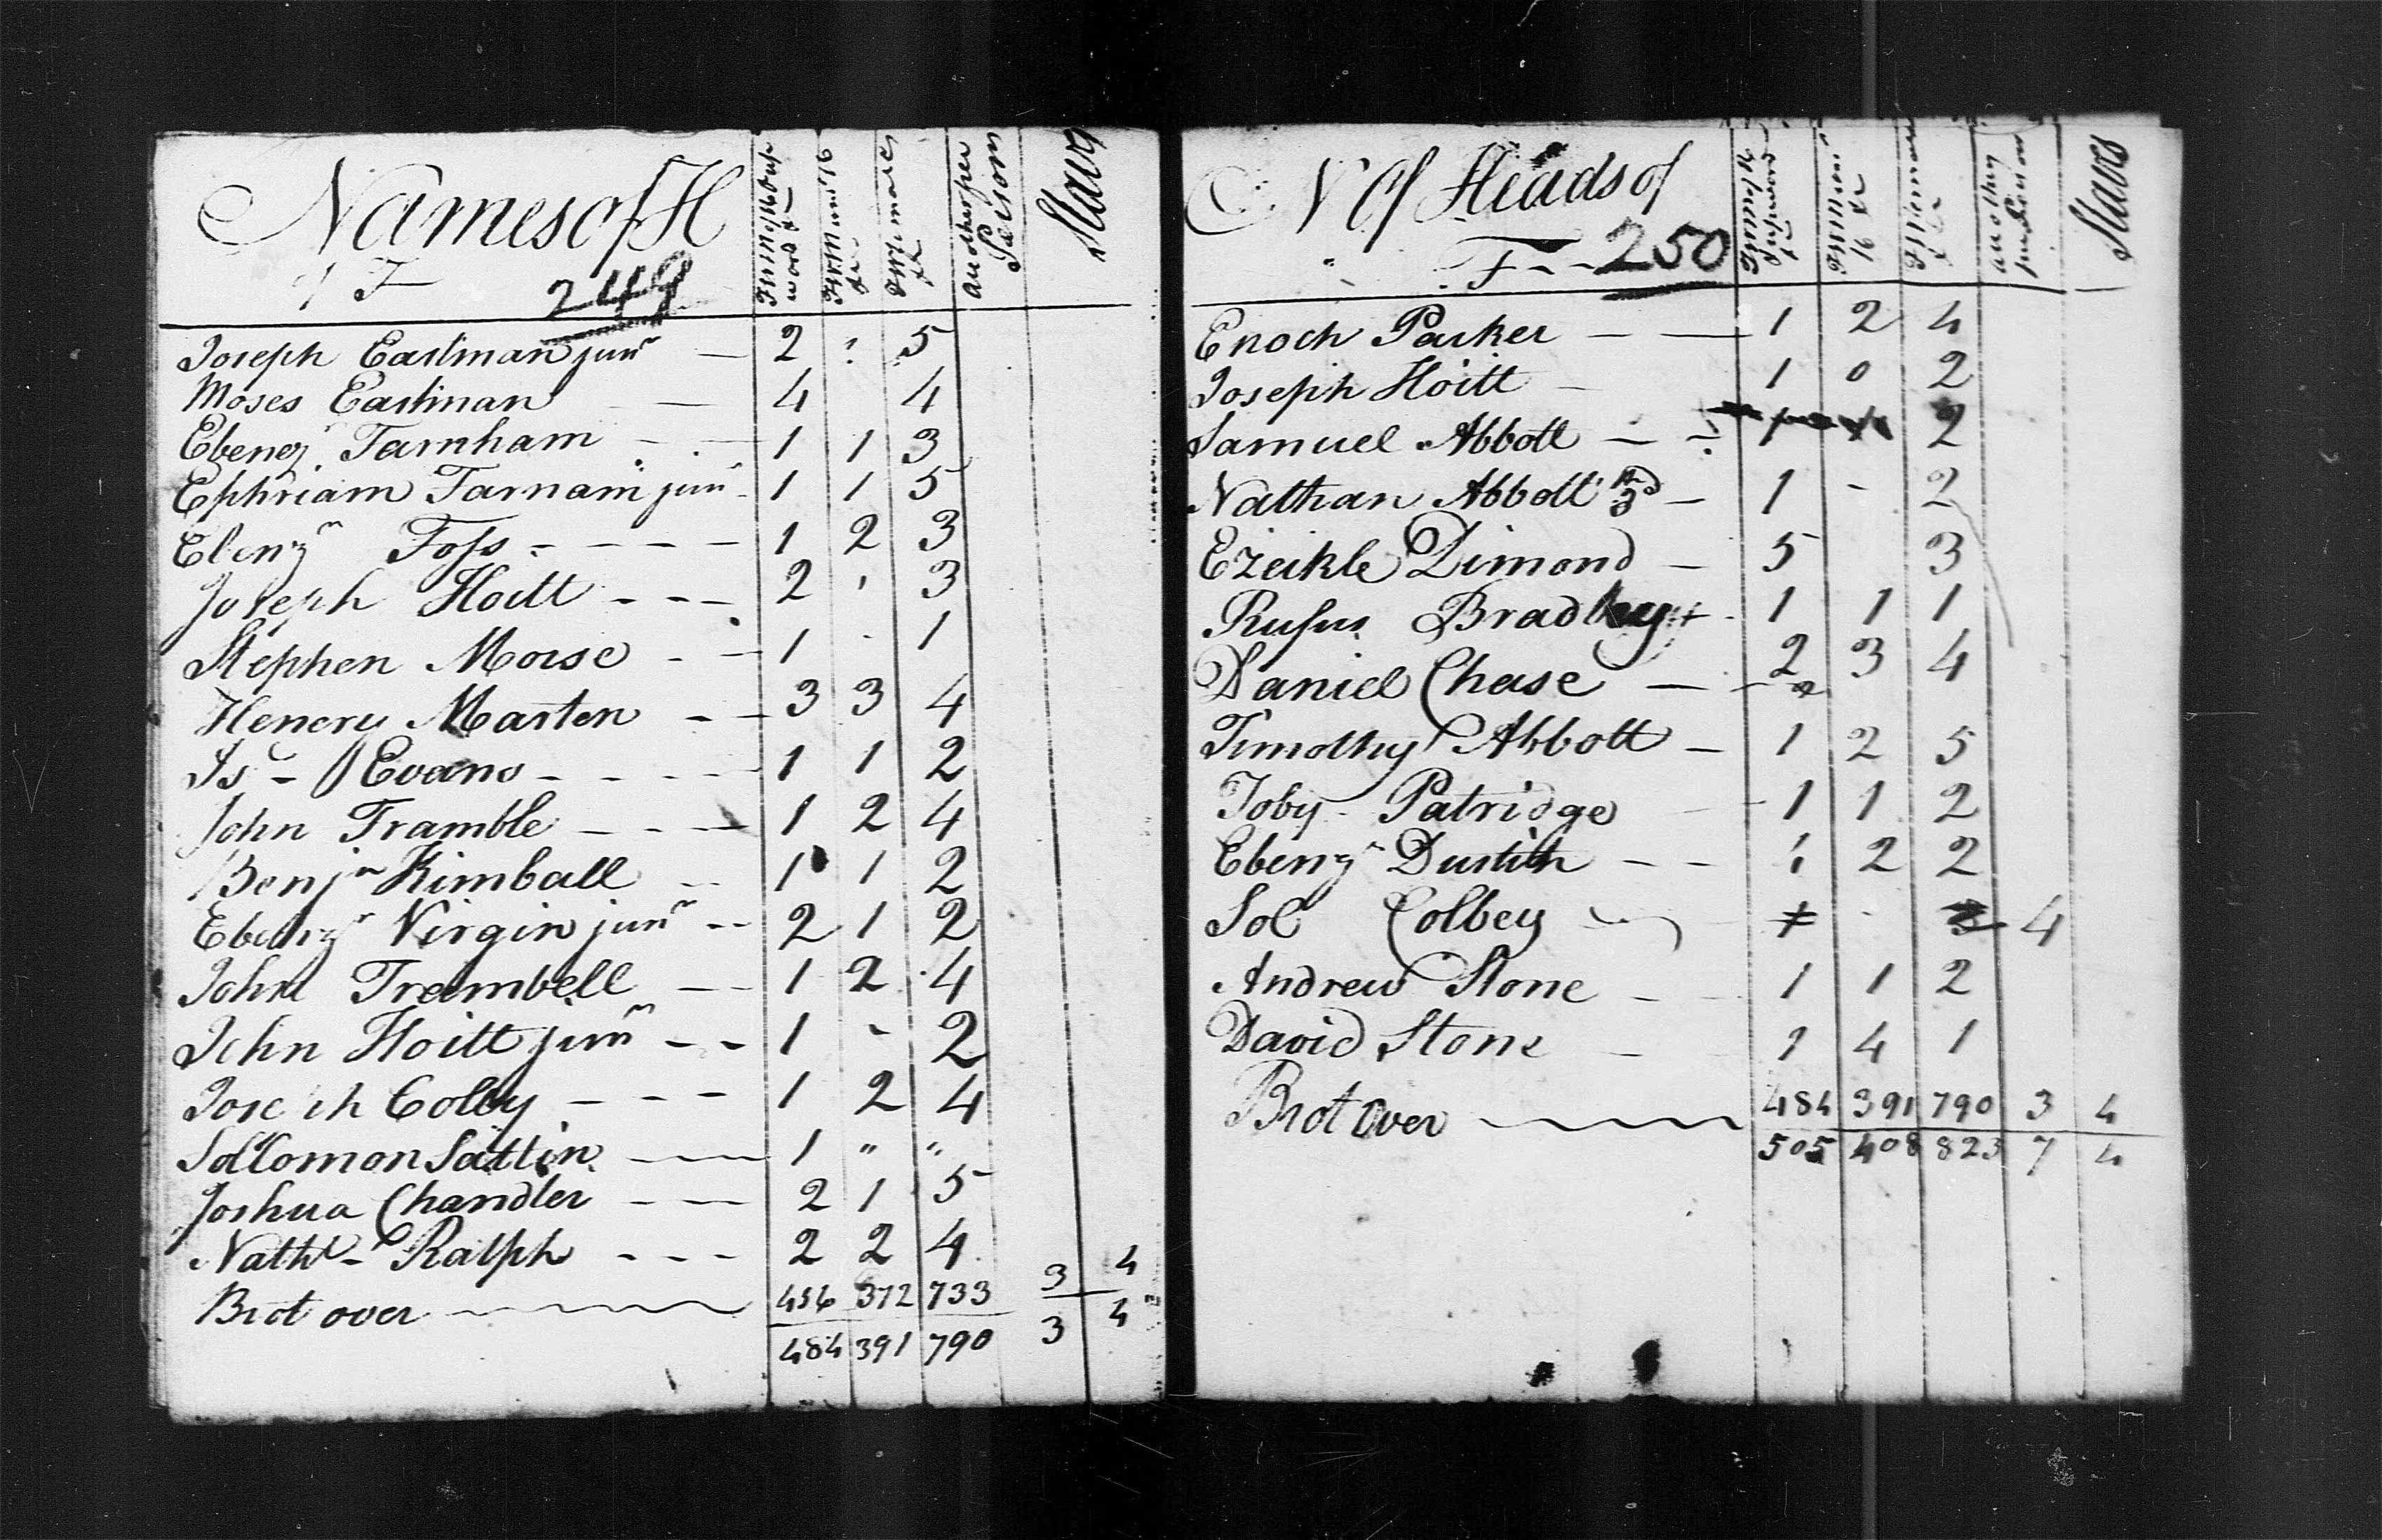 Names of H
of F 249
Slaves
Joseph Eastman junr — 2 : 5
Moses Eastman — 4 4
Ebenezr Farnham - — 1 1 3
Ephriam Farnam junr - 1 1 5
Ebenzr Foss - - - - - 1 2 3
Joseph Hoitt - - - 2 ' 3
Stephen Morse - — 1 - 1
Henery Marten - — 3 3 4
Evans - - - - - 1 1 2
John Tramble - - - 1 2 4
Benjn Kimball - - 1 1 2
Ebenzr Virgin junr - - 2 1 2
John Trembell — - 1 2 4
John Hoitt junr - - 1 - 2
Joseph Colby - - - 1 2 4
Sollomon Sattin — 1 " "
Joshua Chandler - — 2 1 5
Nathl - Ralph - - - 2 2 4
Brot over 454 372 733 3 4
484 391 790 3 4
N of Heads of
F - - 250
Slaves
Enoch Parker — — 1 2 4
Joseph Hoitt - 1 0 2
Samuel Abbott — - 1 2
Nathan Abbott 3d — 1 - 2
Ezeikle Dimond — 5 3
Rufus Bradley 1 1 1
Daniel Chase — - 2 3 4
Timothy Abbott — 1 2 5
Toby - Patridge — 1 1 2
Ebenzr Dustin - - 1 2 2
Sol Colbey 4
Andrew Stone - - 1 1 2
David Stone - 1 4 1
Brot Over 484 391 790 3 4
505 408 823 7 4